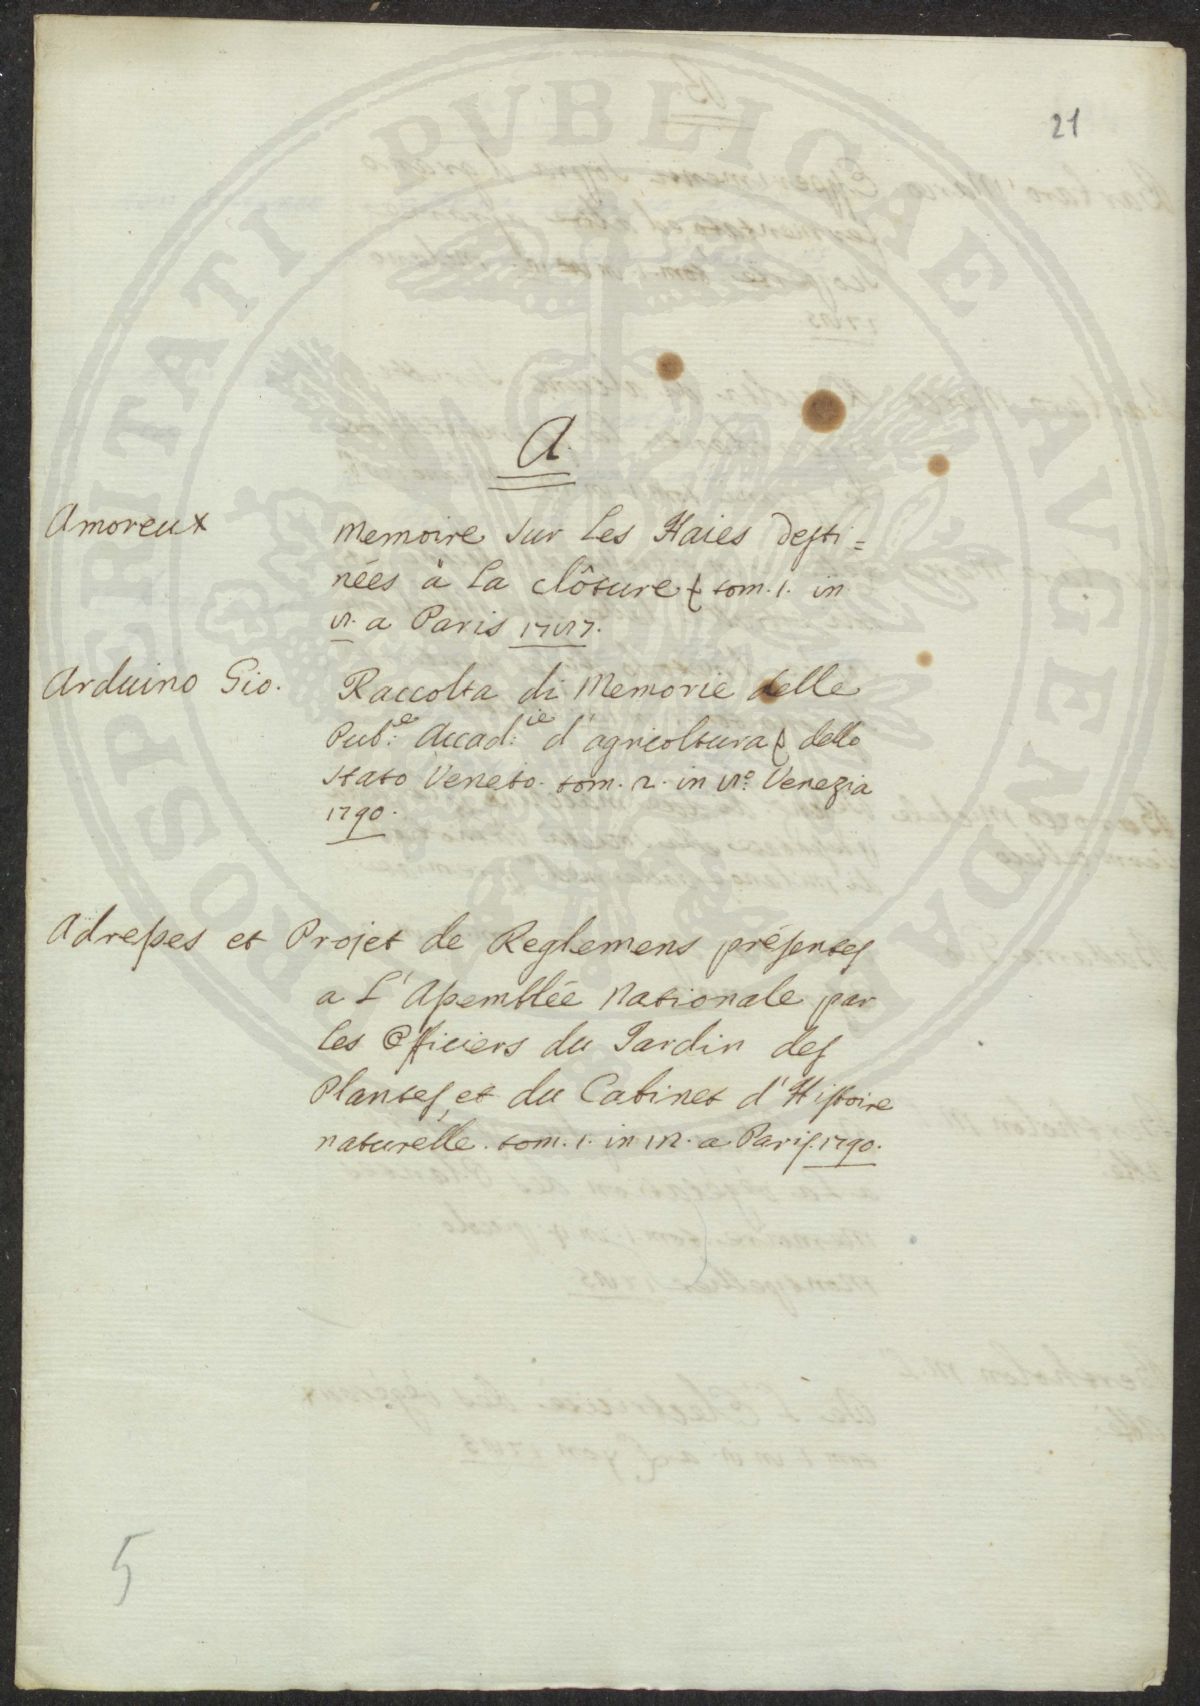 21
A.
Amoreux Memoire sur Les Haies Desti=
nées à La clôture & tom. 1. in
8. a Paris 1787.
Arduino Gio. Raccolta di Memorie delle
Pub:e Accad:ie d'agricoltura & dello
Stato Veneto. tom. 2. in 8o. Venezia
1790.
Adresses et Projet de Reglemens présentes
a L'Assemblée Nationale par
les Officiers du Jardin des
Plantes, et du Cabinet d'Histoire
naturelle. tom. 1. in 12. a Paris. 1790.
5